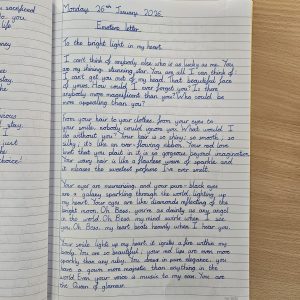 sacrificed
to you
life
Monday 26th January 2026
Emotive letter
To the bright light in my heart
I can't think of anybody else who is as lucky as me. You
are my shining, stunning star. You are all I can think of:
I can't get you out of my head. That beautiful face
of yours. How could I ever forget you? Is there
anybody more magnificent than you? Who could be
more appealing than you?
From your hair to your clothes. From your eyes to
your smile nobody could ignore you. What would I
do without you? Your hair is so shiny, so smooth, so
silky, it's like an ever-flowing ribbon. Your red love
knot that you plait in it is so gorgeous beyond imagination.
Your wavy hair is like a flawless of sparkle and
it releases the sweetest perfume I've ever smelt.
Your eyes are mesmerising and your pure-black eyes
are a galaxy sparkling through the world, lighting up
my heart. Your eyes are like diamonds reflecting of the
bright moon. Oh Bess, you're so dainty as any angel
in the world. Oh Bess, my mind swirls when I see
you. Oh Bess, my heart beats heavily when I hear you.
Your smile lights up my heart, it ignites a fire within my
body. You are so beautiful: your red lips are even more
sparkly than any ruby. You dress in pure elegance: you
have a gown more majestic than anything in the
world. Even your voice is music to my ears. You are
the Queen of glamour.